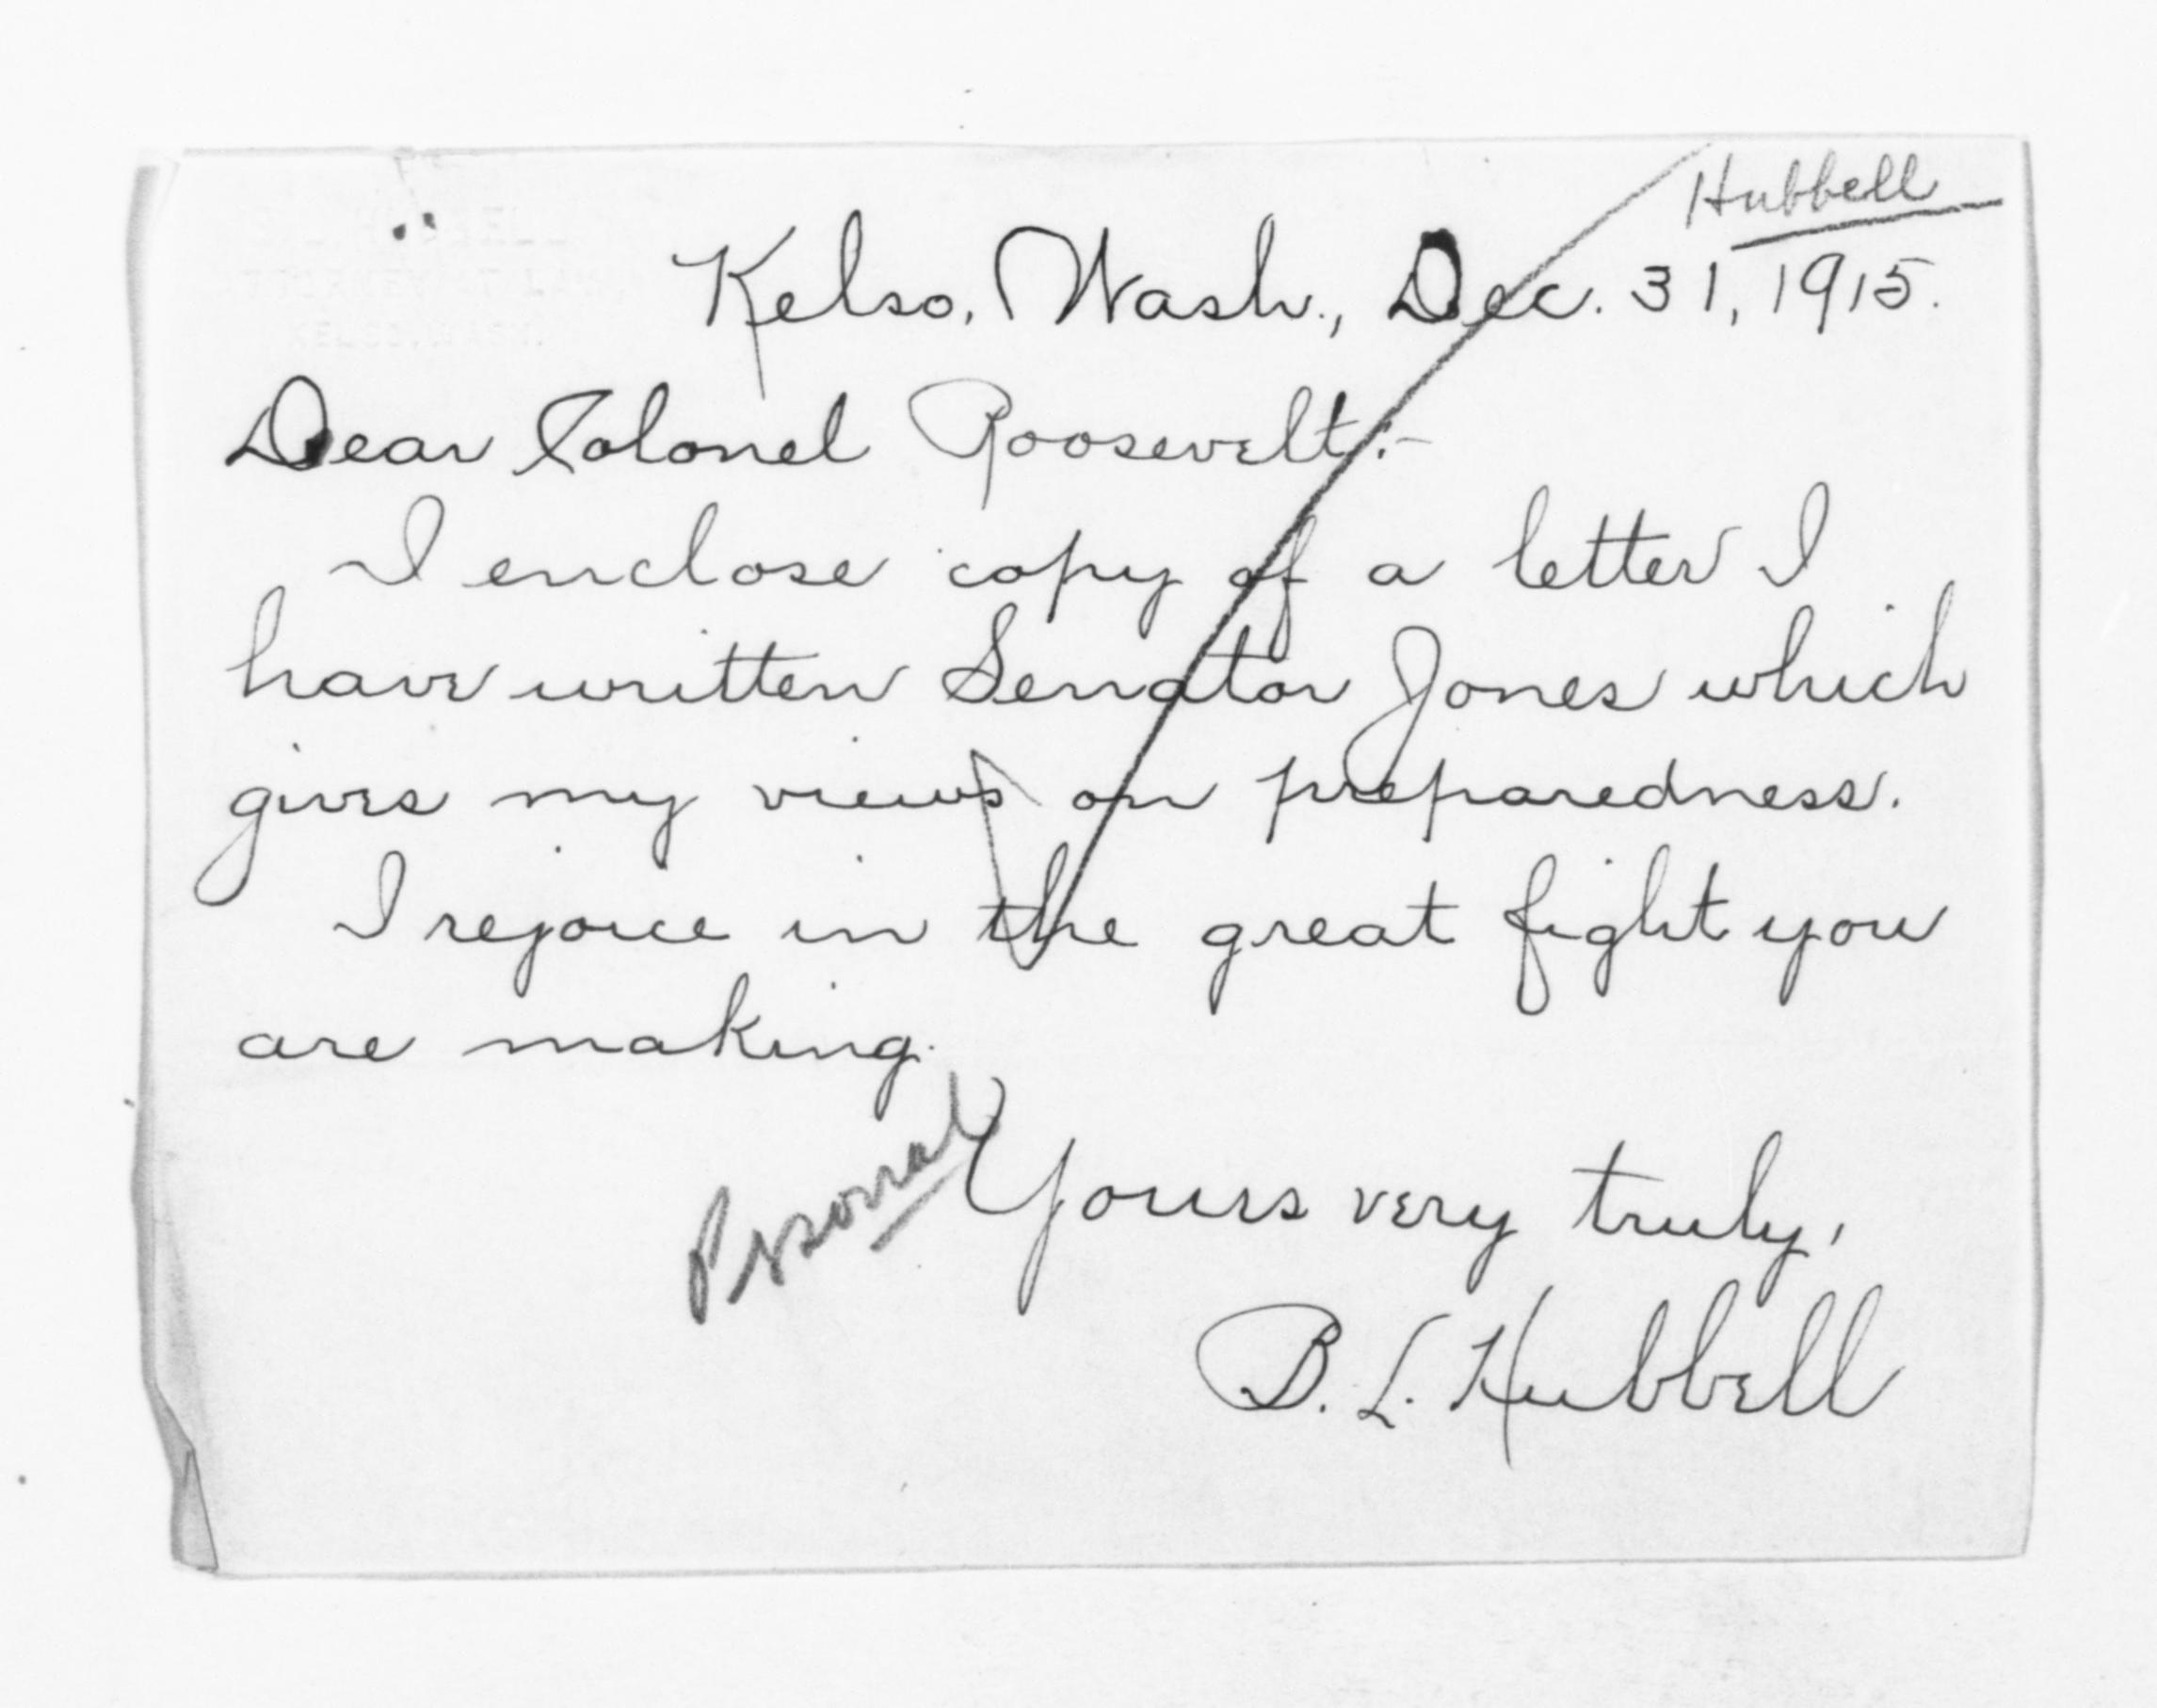 Hubbell
Kelso, Wash., Dec. 31, 1915.
Dear Colonel Roosevelt:-
I enclose copy of a letter I
have written Senator Jones which
gives my views on preparedness.
I rejoice in the great fight you
are making.
Personal
Yours very truly,
B. L. Hubbell